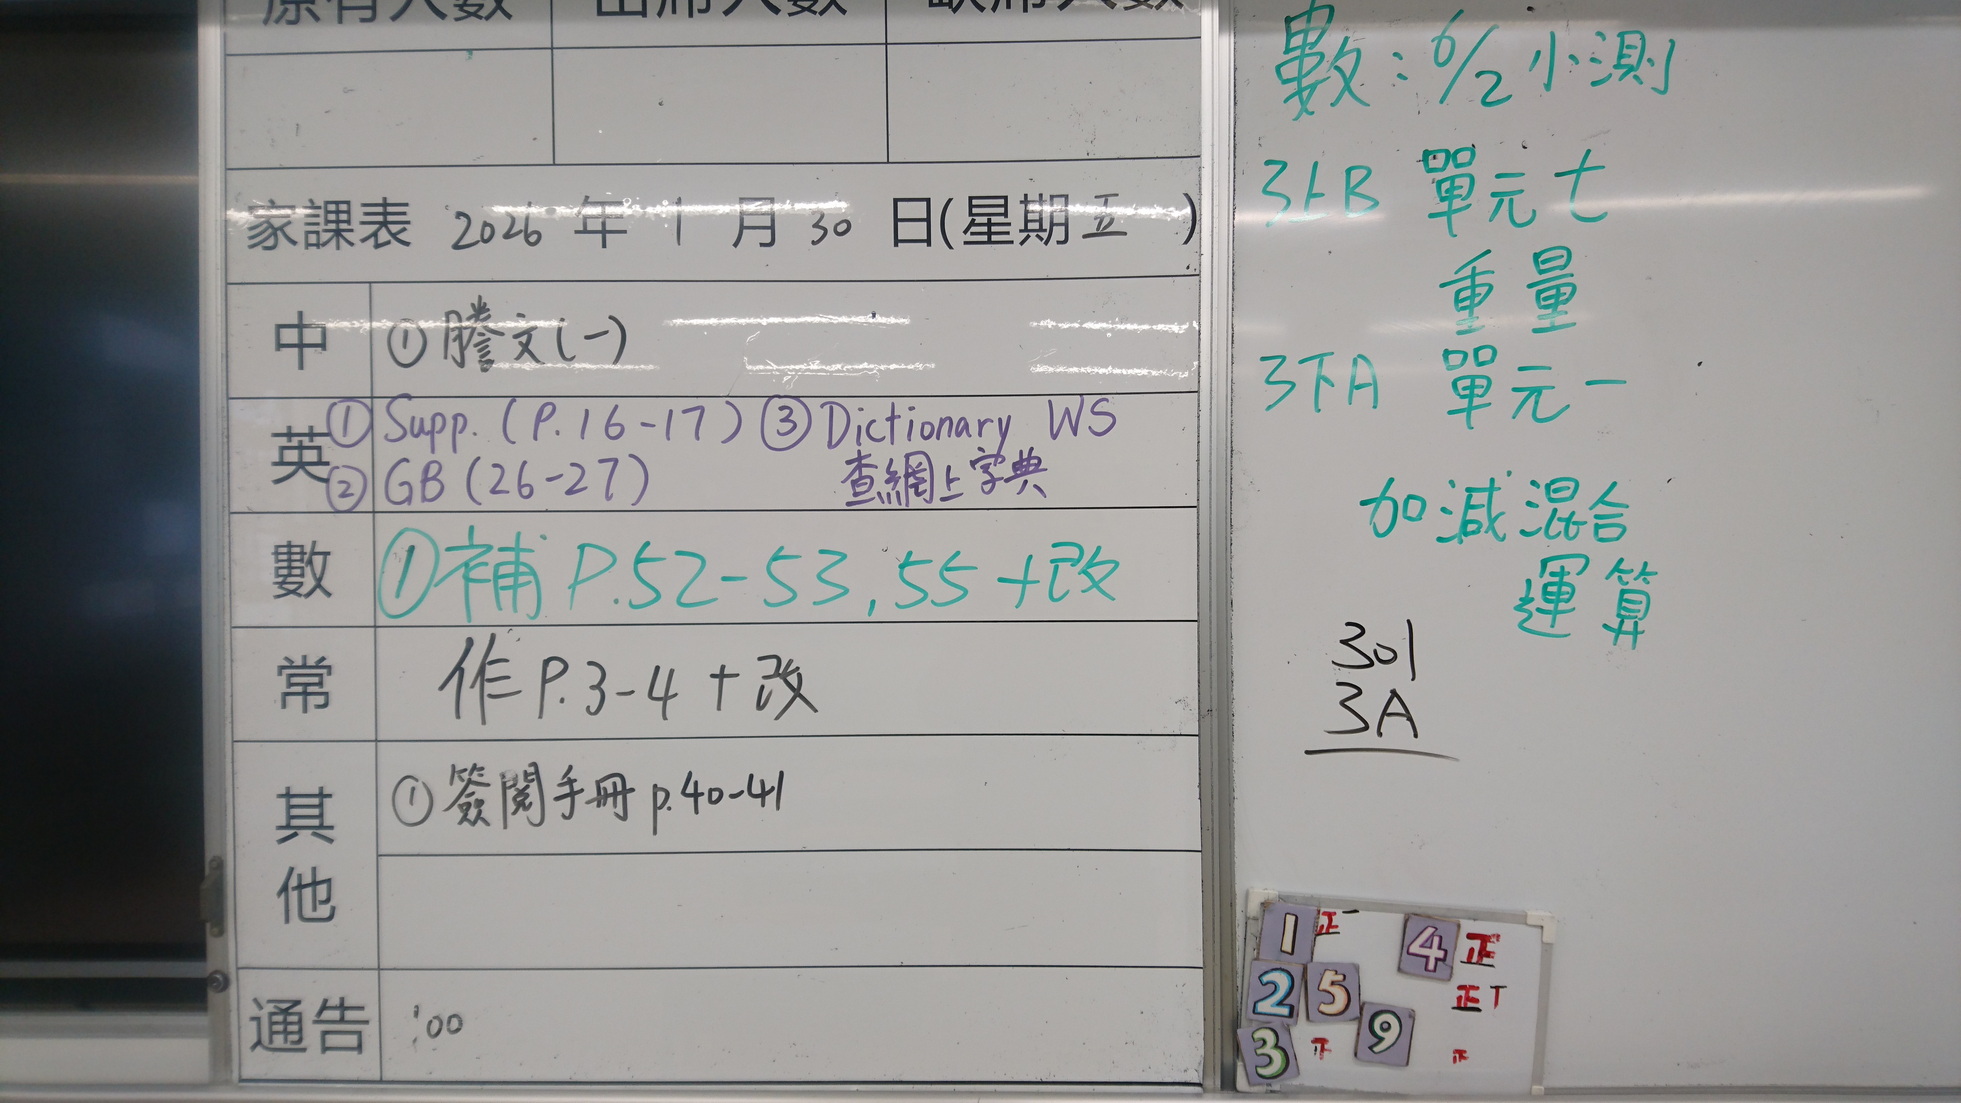 原有人數 出席人數 缺席人數
家課表 2026 年 1 月 30 日(星期五)
中 ①謄文(一)
英 ① Supp. (P.16-17) ③ Dictionary WS
② GB (26-27) 查網上字典
數 ①補 P.52-53, 55 +改
常 作 P.3-4 +改
其他 ①簽閱手冊 p.40-41
通告 :00
數: 6/2 小測
3上B 單元七
重量
3下A 單元一
加減混合
運算
301
3A
1 正一 4 正
2 5 正丅
3 正 9 正